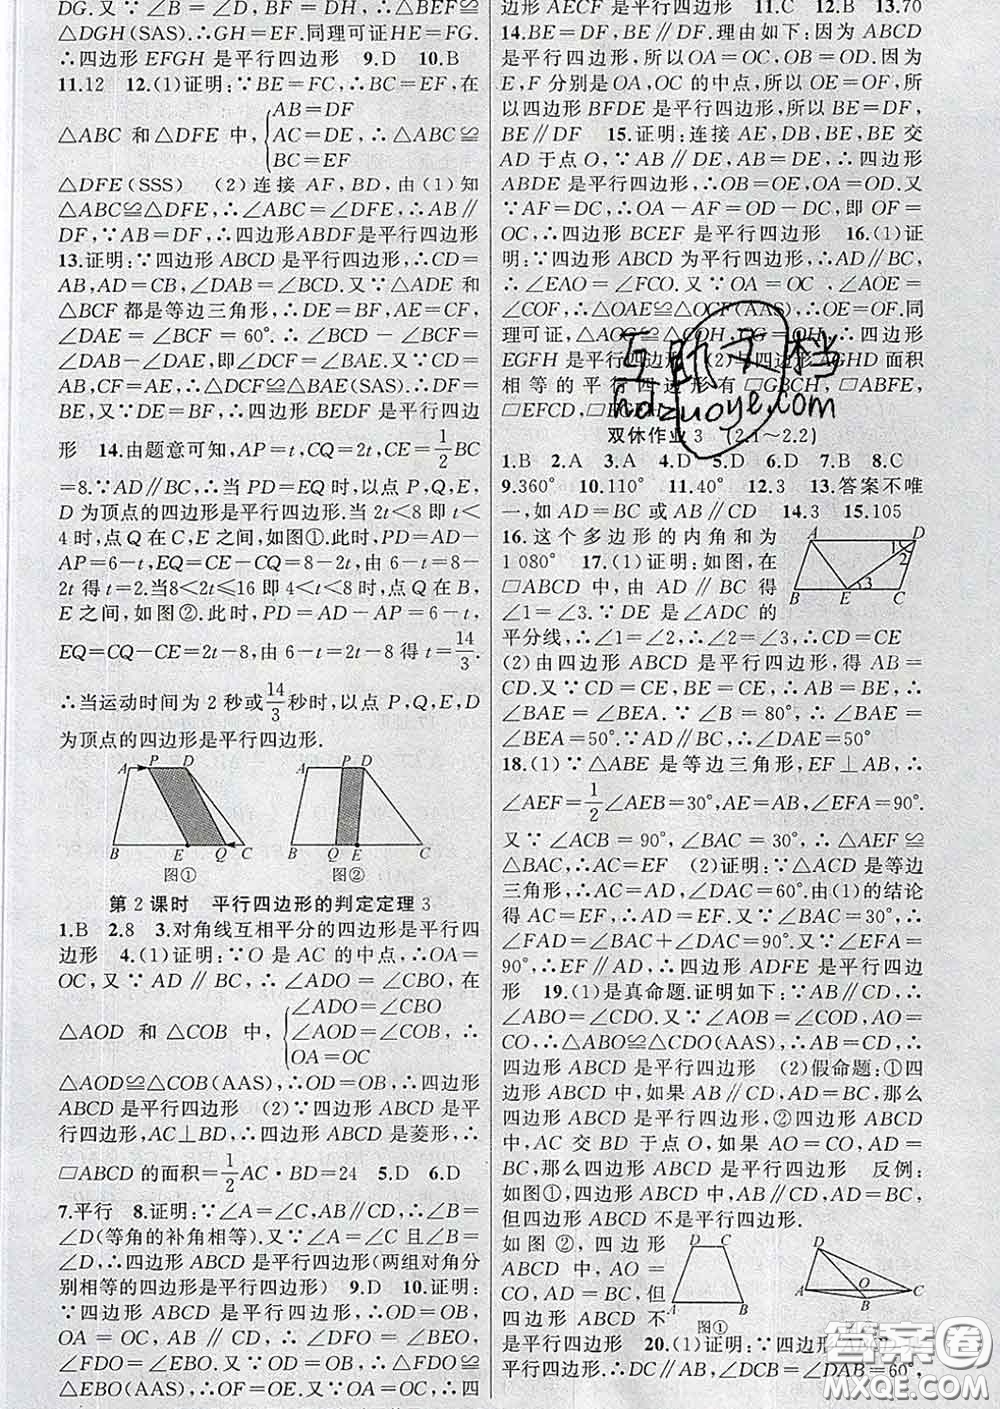 DG.又∵∠B=∠D,BF=DH,∴△BEF≌
△DGH(SAS).∴GH=EF.同理可证HE=FG.
∴四边形EFGH是平行四边形 9.D 10.B
11.12 12.(1)证明:∵BE=FC,∴BC=EF,在
△ABC和△DFE中,{AB=DF
AC=DE,∴△ABC≌
BC=EF
△DFE(SSS) (2)连接AF,BD,由(1)知
△ABC≌△DFE,∴∠ABC=∠DFE,∴AB∥
DF,∵AB=DF,∴四边形ABDF是平行四边形
13.证明:∵四边形ABCD是平行四边形,∴CD=
AB,AD=CB,∠DAB=∠BCD.又∵△ADE和
△BCF都是等边三角形,∴DE=BF,AE=CF,
∠DAE=∠BCF=60°.∴∠BCD-∠BCF=
∠DAB-∠DAE,即∠DCF=∠BAE.又∵CD=
AB,CF=AE,∴△DCF≌△BAE(SAS).∴DF=
BE,又∵DE=BF,∴四边形BEDF是平行四边
形 14.由题意可知,AP=t,CQ=2t,CE=1/2BC
=8.∵AD∥BC,∴当PD=EQ时,以点P,Q,E,
D为顶点的四边形是平行四边形.当2t<8即t<
4时,点Q在C,E之间,如图①.此时,PD=AD-
AP=6-t,EQ=CE-CQ=8-2t,由6-t=8-2t
得t=2.当8<2t≤16即4<t<8时,点Q在B,
E之间,如图②.此时,PD=AD-AP=6-t,
EQ=CQ-CE=2t-8,由6-t=2t-8得t=14/3.
∴当运动时间为2秒或14/3秒时,以点P,Q,E,D
为顶点的四边形是平行四边形.
A P D
B E Q C
图①
A P D
B Q E C
图②
第2课时 平行四边形的判定定理3
1.B 2.8 3.对角线互相平分的四边形是平行四
边形 4.(1)证明:∵O是AC的中点,∴OA=
OC,又∵AD∥BC,∴∠ADO=∠CBO,在
△AOD和△COB中,{∠ADO=∠CBO
∠AOD=∠COB,∴
OA=OC
△AOD≌△COB(AAS),∴OD=OB,∴四边形
ABCD是平行四边形 (2)∵四边形ABCD是平
行四边形,AC⊥BD,∴四边形ABCD是菱形,∴
▱ABCD的面积=1/2AC·BD=24 5.D 6.D
7.平行 8.证明:∵∠A=∠C,AB∥CD,∴∠B=
∠D(等角的补角相等).又∵∠A=∠C且∠B=
∠D,∴四边形ABCD是平行四边形(两组对角分
别相等的四边形是平行四边形) 9.D 10.证明:
∵四边形ABCD是平行四边形,∴OD=OB,
OA=OC,AB∥CD,∴∠DFO=∠BEO,
∠FDO=∠EBO.又∵OD=OB,∴△FDO≌
△EBO(AAS),∴OF=OE.又∵OA=OC,∴四
边形AECF是平行四边形 11.C 12.B 13.70
14.BE=DF,BE∥DF.理由如下:因为ABCD
是平行四边形,所以OA=OC,OB=OD.因为
E,F分别是OA,OC的中点,所以OE=OF,所
以四边形BFDE是平行四边形,所以BE=DF,
BE∥DF 15.证明:连接AE,DB,BE,BE交
AD于点O,∵AB∥DE,AB=DE,∴四边形
ABDE是平行四边形,∴OB=OE,OA=OD.又
∵AF=DC,∴OA-AF=OD-DC,即OF=
OC,∴四边形BCEF是平行四边形 16.(1)证
明:∵四边形ABCD为平行四边形,∴AD∥BC,
∴∠EAO=∠FCO.又∵OA=OC,∠AOE=
∠COF,∴△OAE≌△OCF(ASA),∴OE=OF.同
理可证,△AOG≌△COH,OG=OH,∴四边形
EGFH是平行四边形 (2)与四边形AGHD面积
相等的平行四边形有▱GBCH,▱ABFE,
▱EFCD,▱EGFH
双休作业3 (2.1~2.2)
1.B 2.A 3.A 4.D 5.D 6.D 7.B 8.C
9.360° 10.110° 11.40° 12.3 13.答案不唯
一,如AD=BC或AB∥CD 14.3 15.105
16.这个多边形的内角和为
1 080° 17.(1)证明:如图,在
▱ABCD中,由AD∥BC得
∠1=∠3.∵DE是∠ADC的
平分线,∴∠1=∠2,∴∠2=∠3,∴CD=CE
A D
1 2
3
B E C
(2)由四边形ABCD是平行四边形,得AB=
CD.又∵CD=CE,BE=CE,∴AB=BE,∴
∠BAE=∠BEA.∵∠B=80°,∴∠BAE=
∠BEA=50°.∵AD∥BC,∴∠DAE=50°
18.(1)∵△ABE是等边三角形,EF⊥AB,∴
∠AEF=1/2∠AEB=30°,AE=AB,∠EFA=90°.
又∵∠ACB=90°,∠BAC=30°,∴△AEF≌
△BAC,∴AC=EF (2)证明:∵△ACD是等边
三角形,∴AC=AD,∠DAC=60°.由(1)的结论
得AC=EF,∴AD=EF.∵∠BAC=30°,∴
∠FAD=∠BAC+∠DAC=90°.又∵∠EFA=
90°,∴EF∥AD,∴四边形ADFE是平行四边
形 19.(1)是真命题.证明如下:∵AB∥CD,∴
∠ABO=∠CDO.又∵∠AOB=∠COD,AO=
CO,∴△ABO≌△CDO(AAS),∴AB=CD,∴
四边形ABCD是平行四边形 (2)假命题:①四
边形ABCD中,如果AB∥CD,AD=BC,那么
四边形ABCD是平行四边形,②四边形ABCD
中,AC交BD于点O,如果AO=CO,AD=BC,
那么四边形ABCD是平行四边形 反例:
如图①,四边形ABCD中,AB∥CD,AD=BC,
但四边形ABCD不是平行四边形.
如图②,四边形
ABCD中,AO=
CO,AD=BC,但
四边形ABCD不
是平行四边形 20.(1)证明:∵四边形
D C
A B
图①
D
A O C
B
平行四边形,∴DC∥AB,∠DCB=∠DAB=60°,
互助文档
hdzuoye.com
答案圈
MXQE.COM